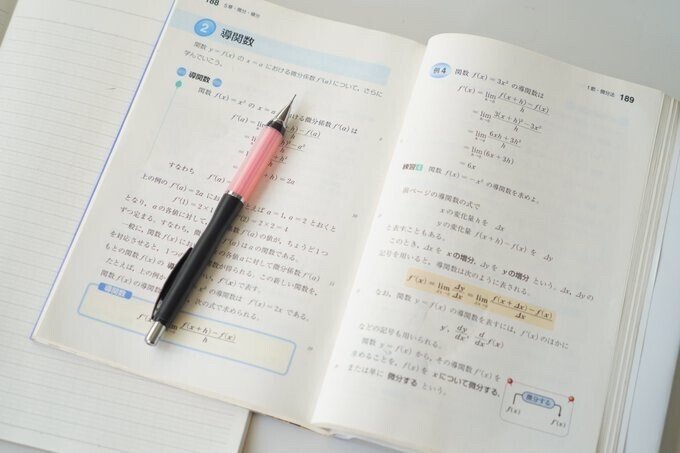 188
5章・微分・積分
2 導関数
関数 y=f(x) の x=a における微分係数 f'(a) について，さらに
学んでいこう。
導関数
関数 f(x)=x² の x=a における微分係数 f'(a) は
f'(a)=lim f(a+h)-f(a)
すなわち f'(a)= +h)=2a
上の例の f'(a)=2a にお とえば a=1, a=2 とおくと
f'(1)=2×1 f'(2)=2×2=4
となり，a の各値に対して， 数 f'(a) の値が，ちょうど1つ
ずつ定まる。すなわち，微 f'(a) は a の関数である。
一般に，関数 f(x) にお の各値 a に対して微分係数 f'(a)
を対応させると，1つの 数が得られる。この新しい関数を，
もとの関数 f(x) の 導 f'(x) で表す。
たとえば，上の例か x² の導関数は f'(x)=2x である。
関数 f(x) の導関数 次の式で求められる。
導関数
f'(x)=lim f(x+h)-f(x)/h
1節・微分法 189
例4 関数 f(x)=3x² の導関数は
f'(x)=lim h→0 f(x+h)-f(x)/h
=lim h→0 3(x+h)²-3x²/h
=lim h→0 6xh+3h²/h
=lim h→0 (6x+3h)
=6x
練習4 関数 f(x)=-x² の導関数を求めよ。
前ページの導関数の式で
x の変化量 h を Δx
y の変化量 f(x+h)-f(x) を Δy
と表すこともある。
このとき，Δx を x の増分，Δy を y の増分 という。Δx, Δy の
記号を用いると，導関数は次のように表される。
f'(x)=lim Δx→0 Δy/Δx=lim Δx→0 f(x+Δx)-f(x)/Δx
なお，関数 y=f(x) の導関数を表すには，f'(x) のほかに
y', dy/dx, d/dx f(x)
などの記号も用いられる。
関数 y=f(x) から，その導関数 f'(x) を
求めることを，f(x) を x について微分する，
または単に 微分する という。
微分する
f(x) f'(x)